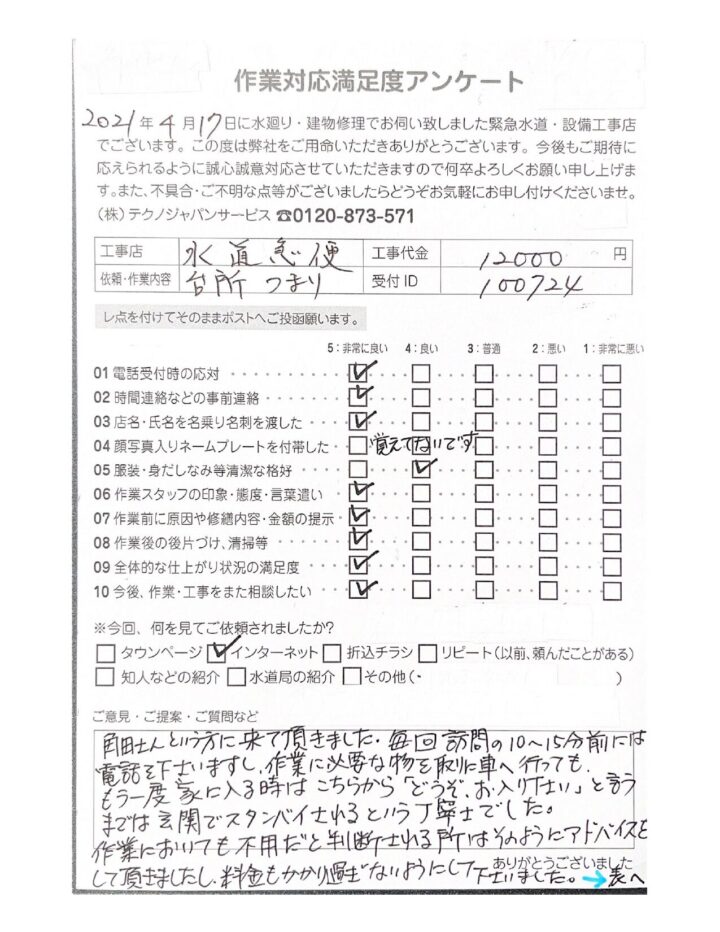 作業対応満足度アンケート
2021年4月17日に水廻り・建物修理でお伺い致しました緊急水道・設備工事店
でございます。この度は弊社をご用命いただきありがとうございます。今後もご期待に
応えられるように誠心誠意対応させていただきますので何卒よろしくお願い申し上げま
す。また、不具合・ご不明な点等がございましたらどうぞお気軽にお申し付けくださいませ。
(株)テクノジャパンサービス ☎0120-873-571
工事店 水道急便 工事代金 12000 円
依頼・作業内容 台所つまり 受付ID 100724
レ点を付けてそのままポストへご投函願います。
5:非常に良い 4:良い 3:普通 2:悪い 1:非常に悪い
01 電話受付時の応対
02 時間連絡などの事前連絡
03 店名・氏名を名乗り名刺を渡した
04 顔写真入りネームプレートを付帯した 覚えてないです
05 服装・身だしなみ等清潔な格好
06 作業スタッフの印象・態度・言葉遣い
07 作業前に原因や修繕内容・金額の提示
08 作業後の後片づけ、清掃等
09 全体的な仕上がり状況の満足度
10 今後、作業・工事をまた相談したい
※今回、何を見てご依頼されましたか?
タウンページ インターネット 折込チラシ リピート(以前、頼んだことがある)
知人などの紹介 水道局の紹介 その他(・ )
ご意見・ご提案・ご質問など
角田さんという方に来て頂きました。毎回訪問の10〜15分前には
電話を下さいますし、作業に必要な物を取りに車へ行っても、
もう一度家に入る時はこちらから「どうぞ、お入り下さい」と言う
までは玄関でスタンバイされるという丁寧さでした。
作業においても不用だと判断される所はそのようにアドバイスを
して頂きましたし、料金もかかり過ぎないようにして下さいました。→表へ
ありがとうございました